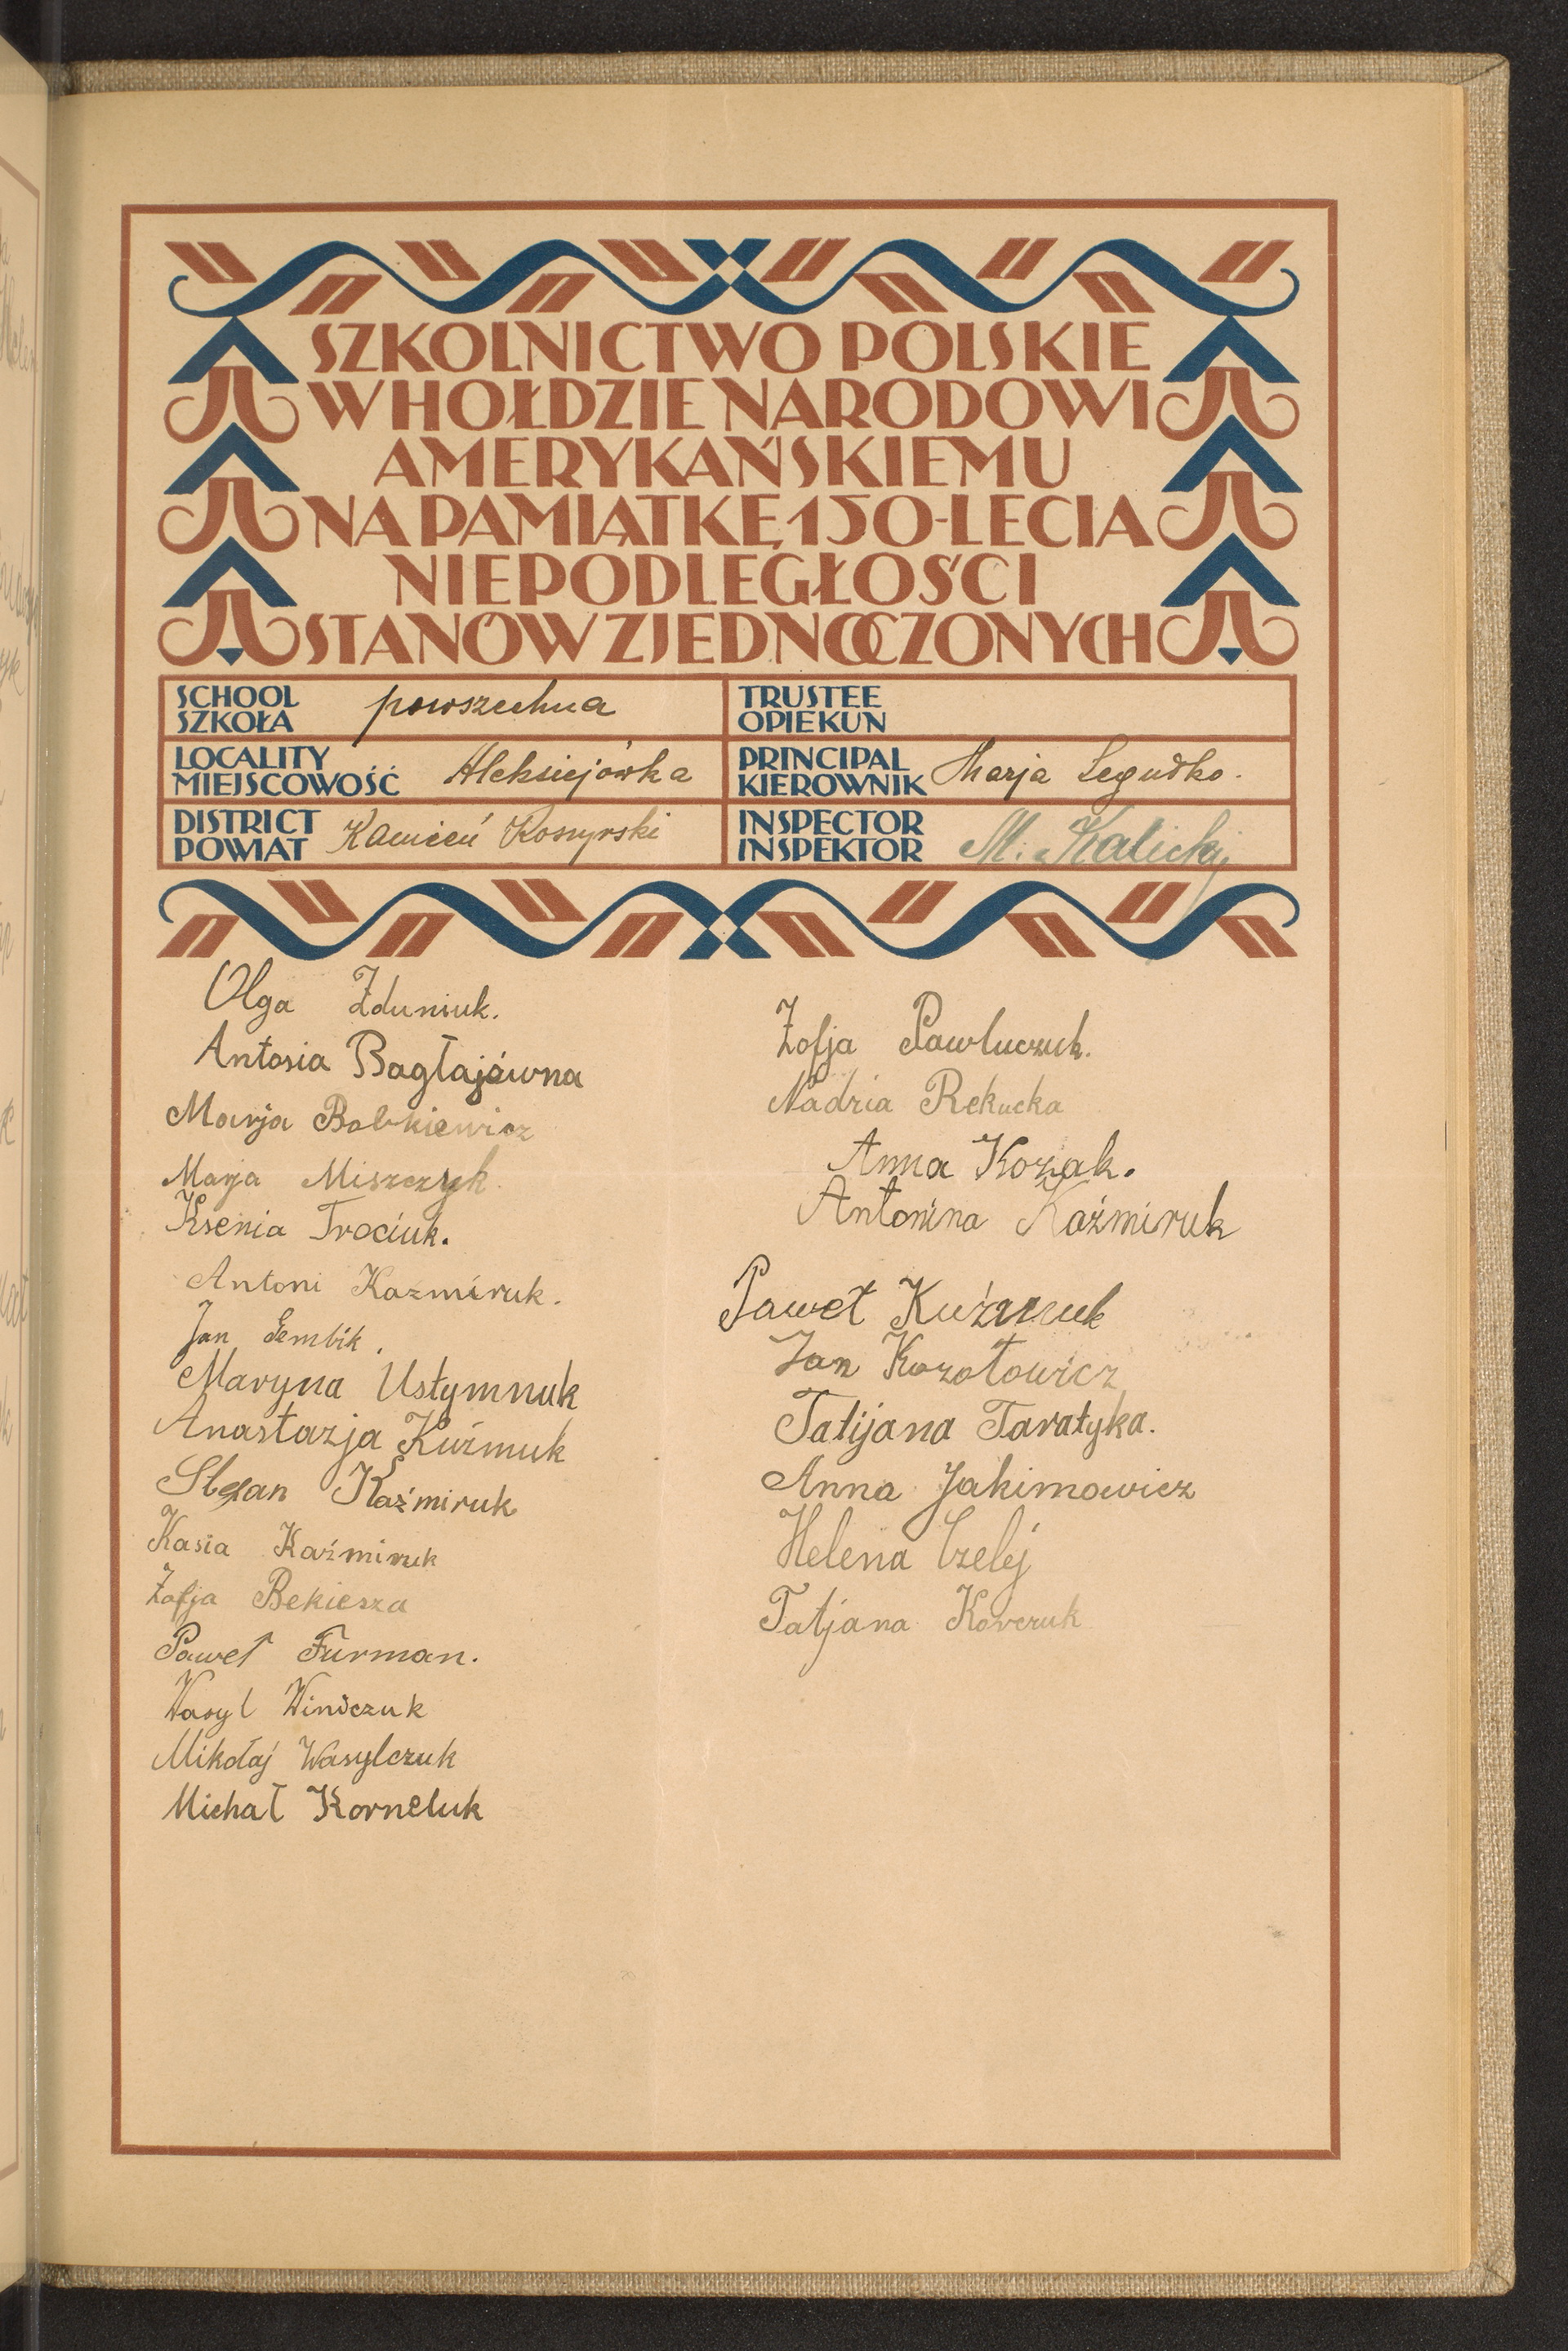 SZKOLNICTWO POLSKIE
W HOŁDZIE NARODOWI
AMERYKAŃSKIEMU
NA PAMIĄTKĘ 150-LECIA
NIEPODLEGŁOŚCI
STANÓW ZJEDNOCZONYCH
SCHOOL
SZKOŁA
powszechna
TRUSTEE
OPIEKUN
LOCALITY
MIEJSCOWOŚĆ
Aleksiejówka
PRINCIPAL
KIEROWNIK
Marja Legudko.
DISTRICT
POWIAT
Kamień Koszyrski
INSPECTOR
INSPEKTOR
M. Kalicki
Olga Zduniuk.
Antosia Bagłajówna
Marja Bobkiewicz
Marja Miszczyk.
Ksenia Trociuk.
Antoni Kaźmiruk.
Jan Sembik.
Maryna Ustymnuk
Anastazja Kuźmuk
Stefan Kaźmiruk
Kasia Kaźmiruk
Zofja Bekiesza
Paweł Furman.
Wasyl Winiczuk
Mikołaj Wasylczuk
Michał Korneluk
Zofja Pawluczuk.
Nadzia Rekucka
Anna Kozak.
Antonina Kaźmiruk
Paweł Kuźmuk
Jan Kozołowicz
Tatijana Taratyka.
Anna Jakimowicz
Helena Czelej
Tatjana Kowczuk